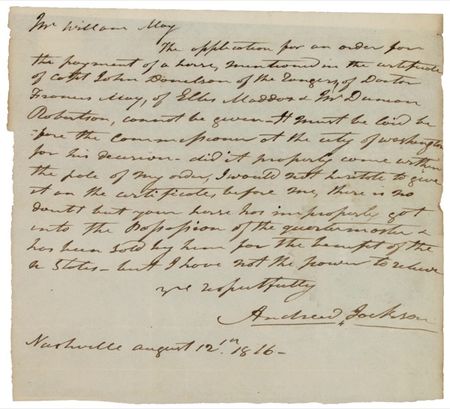 Mr William May
The application for an order for
the payment of a horse, mentioned in the certificate
of Capt John Donelson of the Rangers, of Doctor
Francis May, of Ellis Maddox & Mr Duncan
Robertson, cannot be given - It must be laid be
fore the Commissioner at the city of washington
for his decision - did it properly come within
the pale of my order, I would not hesitate to give
it on the certificates before me, there is no
doubt but your horse has improperly got
into the Possession of the quartermaster &
has been sold by him for the benefit of the
u States - but I have not the power to relieve
yrs respectfully
Andrew Jackson
Nashville august 12th 1816 -